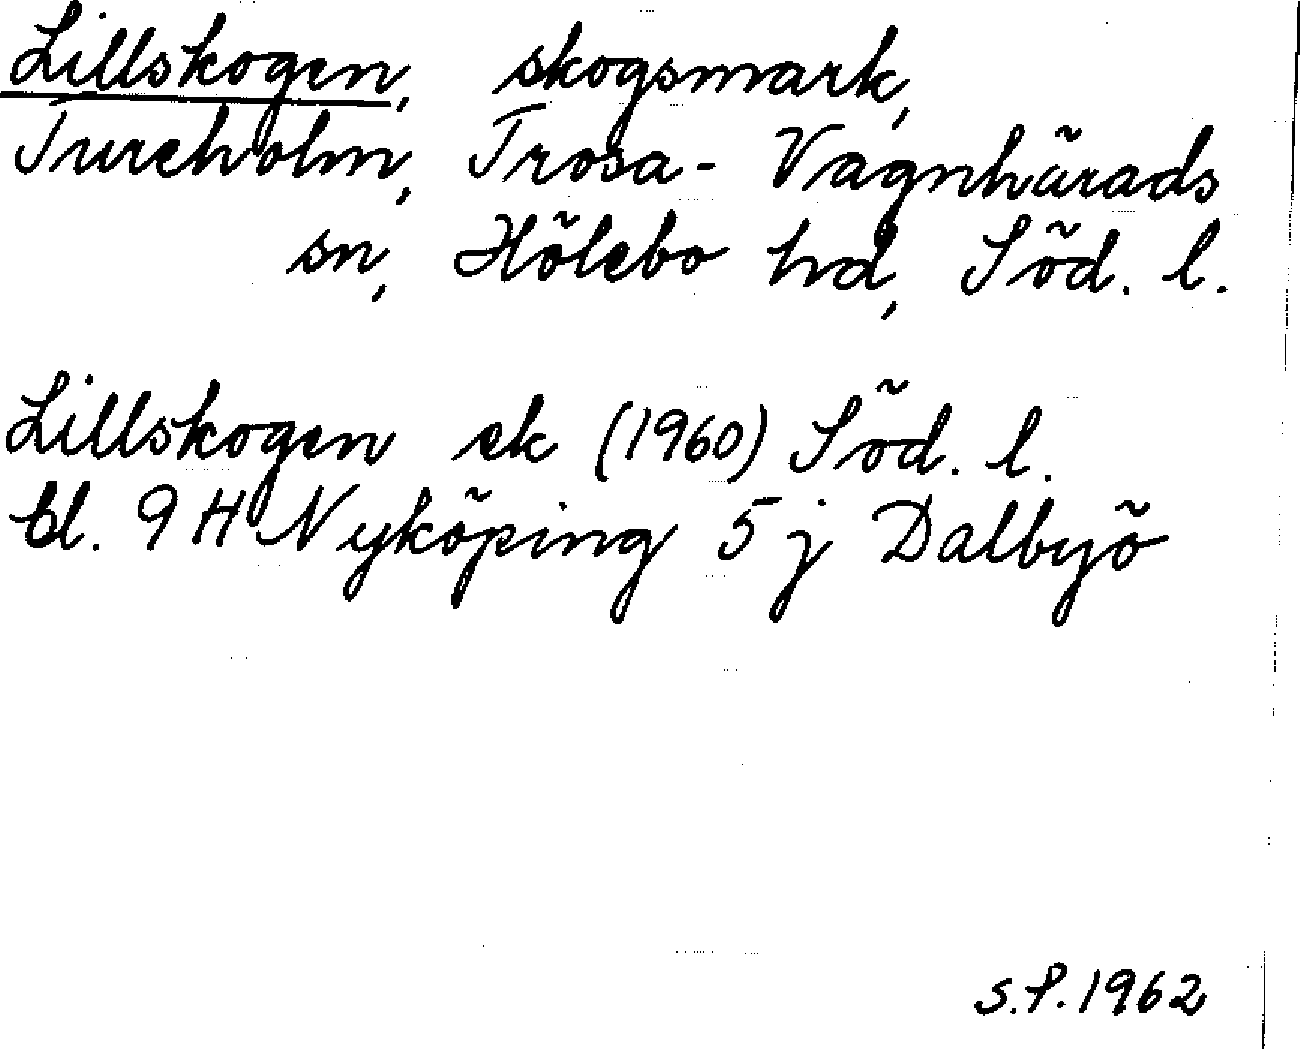 Lillskogen, skogsmark,
Tureholm, Trosa-Vagnhärads
sn, Hölebo hd, Söd. l.
Lillskogen ek (1960) Söd. l.
bl. 9 H Nyköping 5 j Dalbyö
S.P. 1962